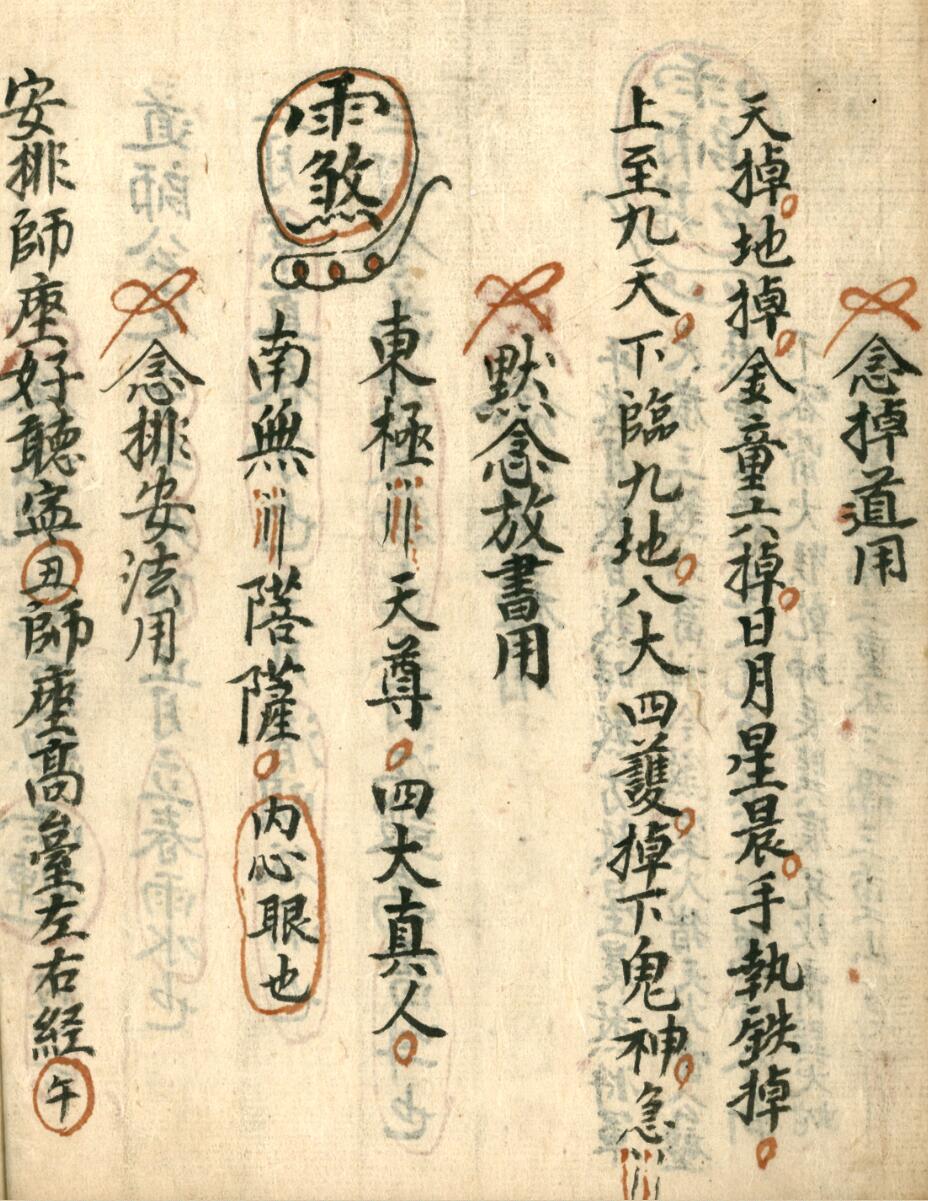 念掉道用
天掉地掉金童六掉日月星晨手執鉄掉
上至九天下臨九地八大四護掉下鬼神急
默念放書用
東極 天尊四大真人
南無 菩薩內心眼也
雨煞
念排安法用
安排師座好聽 丑師座高臺左右経午